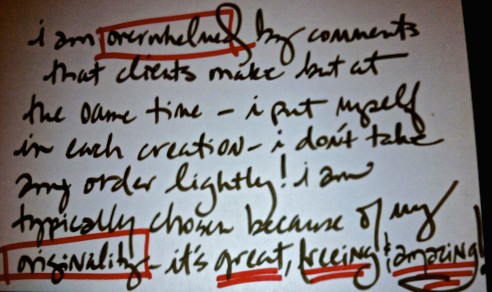 i am overwhelmed by comments
that clients make but at
the same time - i put myself
in each creation - i don't take
any order lightly! i am
typically chosen because of my
originality - it's great, freeing & amazing!